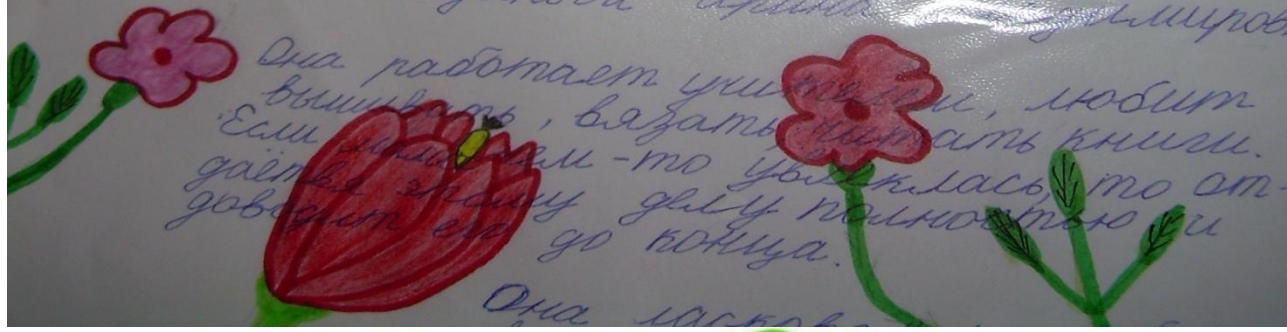 Ирина
Она работает учителем, любит
вышивать, вязать, читать книги.
Если мама чем-то увлеклась, то от
даётся этому делу полностью и
доводит его до конца.
Она ласкова